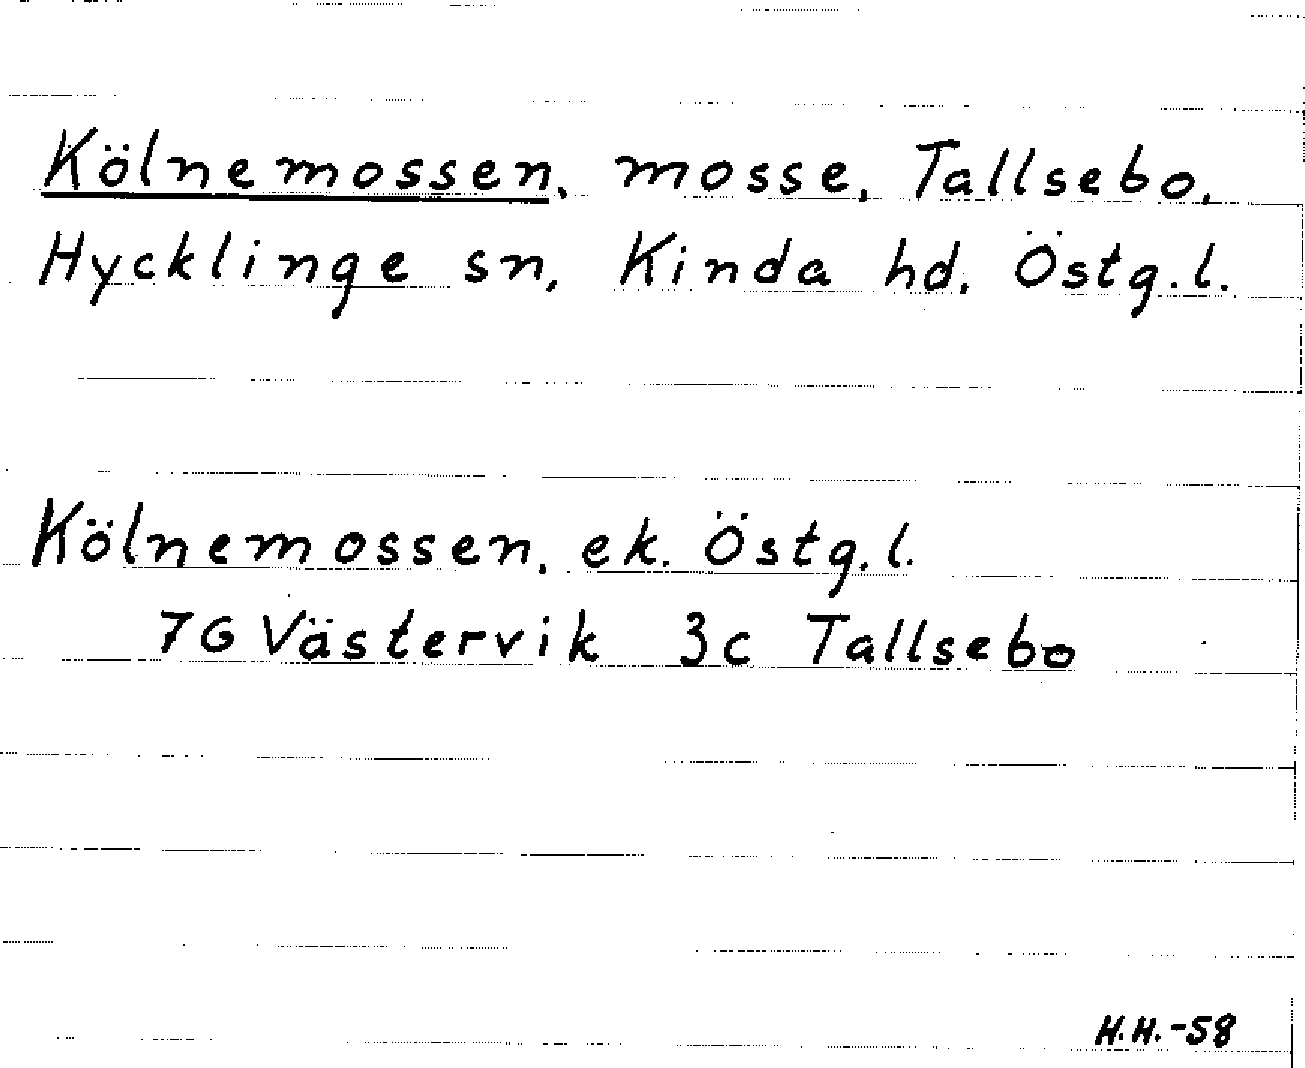 Kölnemossen, mosse, Tallsebo,
Hycklinge sn, Kinda hd. Östg.l.
Kölnemossen, ek. Östg.l.
7G Västervik 3c Tallsebo
H.H.-58